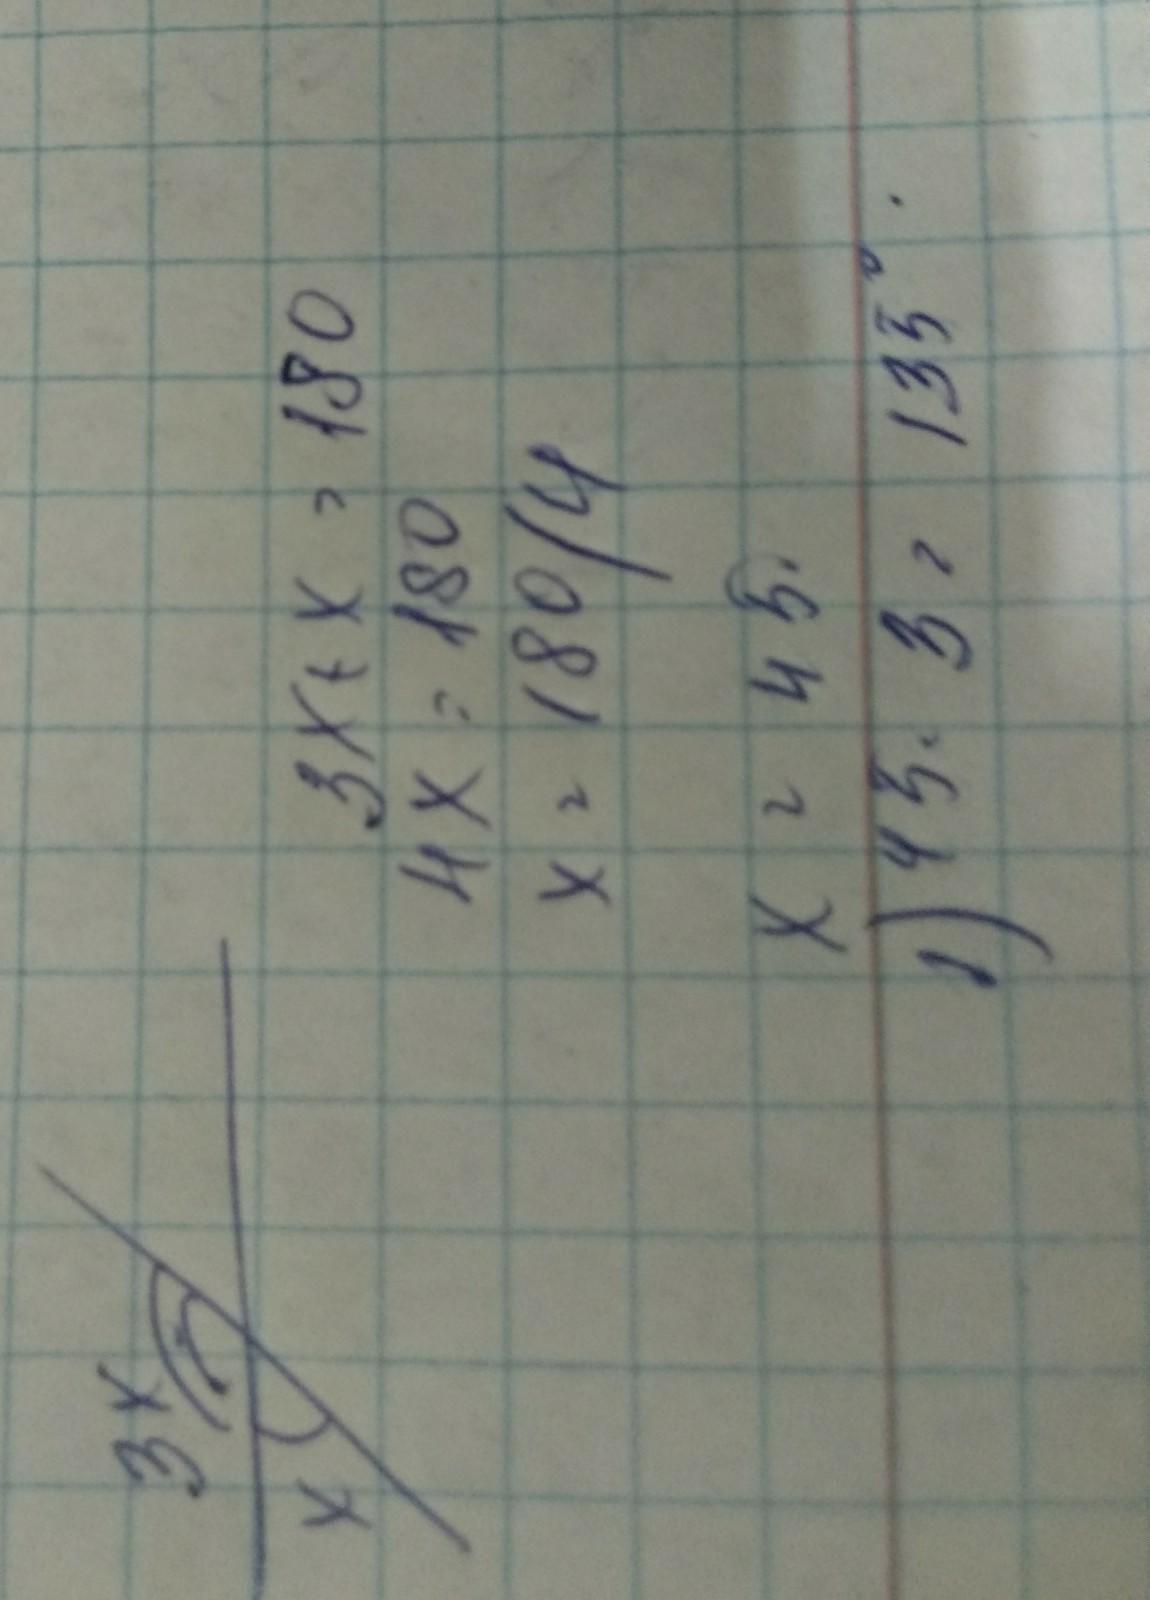 3x
x
3x + x = 180
4x = 180
x = 180/4
x = 45.
1) 45 · 3 = 135°.